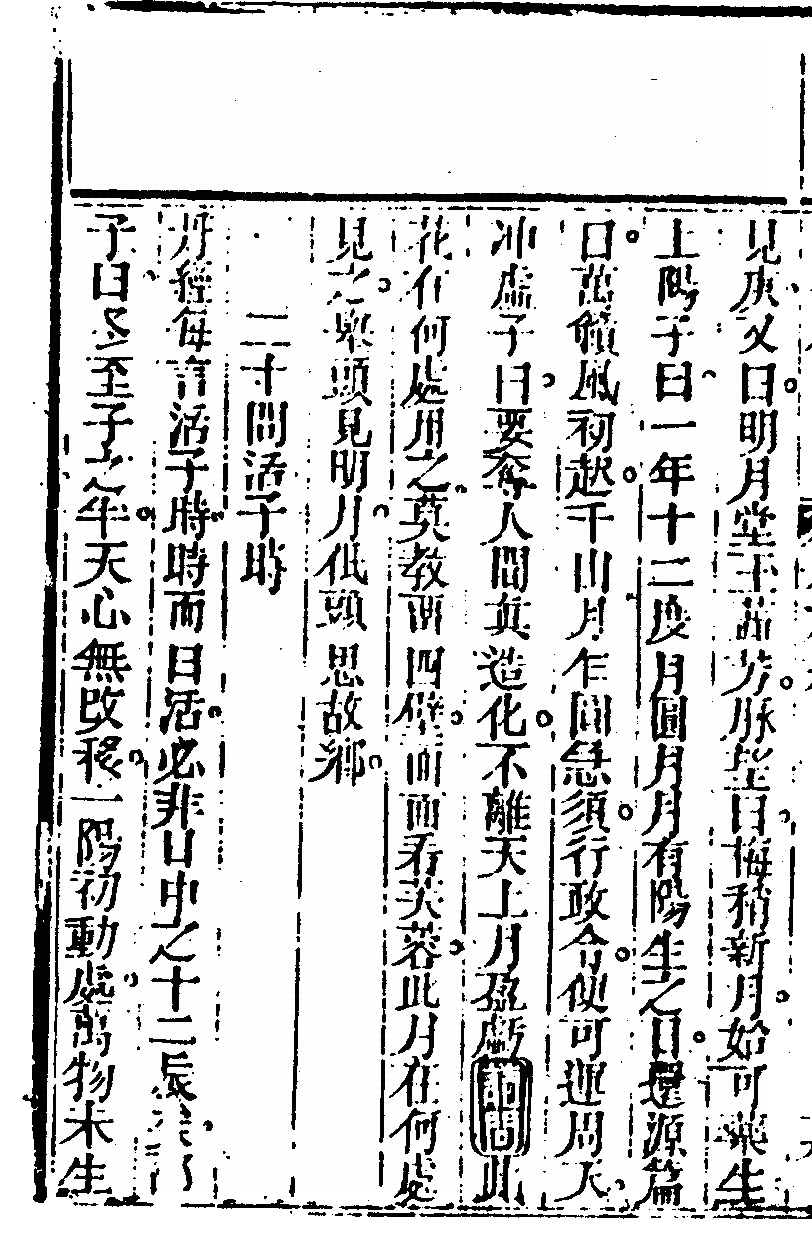 見庚又曰明月堂玉蕋芳脉望日梅稍新月始可藥生
上陽子曰一年十二度月圓月月有陽生之日還源篇
曰萬籟風初起千山月乍圓急須行政令便可運周天
冲虛子曰要奪人間真造化不離天上月盈虧詞曰此
花在何處用之莫教面四壁面面看芙蓉此月在何處
見之舉頭見明月低頭思故鄉
二十問活子時
丹經每言活子時時而曰活必非日中之十二辰
子曰冬至子之半天心無改移一陽初動處萬物未生